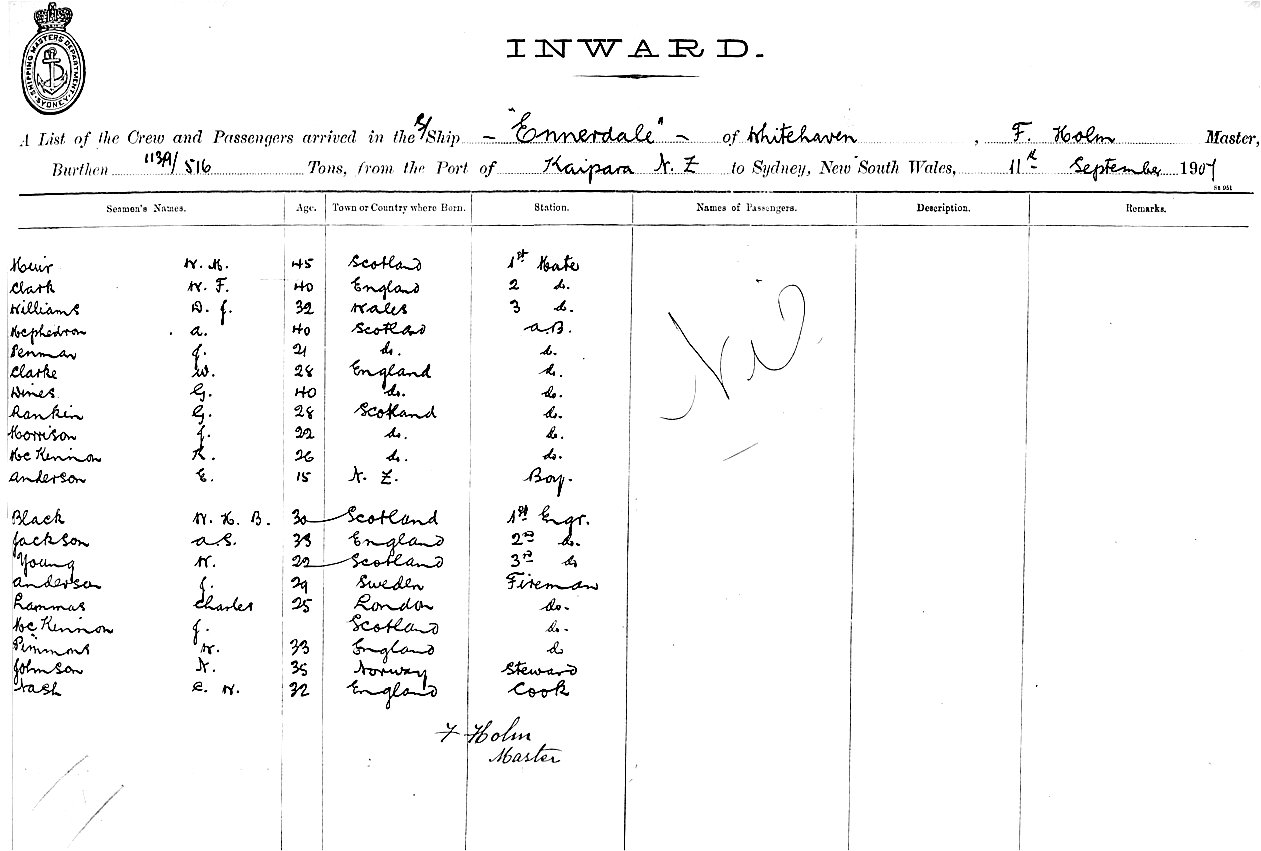 SHIPPING MASTERS DEPARTMENT. SYDNEY
INWARD.
A List of the Crew and Passengers arrived in the S/Ship - "Ennerdale" - of Whitehaven, F. Holm Master,
Burthen 1139/516 Tons, from the Port of Kaipara N. Z to Sydney, New South Wales, 11th September 1907
Seamen's Names. Age. Town or Country where Born. Station. Names of Passengers. Description. Remarks.
Muir W. M. 45 Scotland 1st Mate
Clark W. F. 40 England 2 do.
Williams D. J. 32 Wales 3 do.
McPhedron A. 40 Scotland A.B.
Penman J. 21 do. do.
Clarke W. 28 England do.
Dines G. 40 do. do.
Rankin G. 28 Scotland do.
Morrison J. 22 do. do.
McKinnon R. 26 do. do.
Anderson E. 15 N. Z. Boy.
Nil
Black W. H. B. 30 Scotland 1st Engr.
Jackson A. S. 33 England 2nd do.
Young W. 22 Scotland 3rd do
Anderson J. 29 Sweden Fireman
Lammas Charles 25 London do.
McKinnon J. Scotland do.
Pimmons W. 33 England do
Johnson N. 35 Norway Steward
Nash C. W. 32 England Cook
F Holm
Master